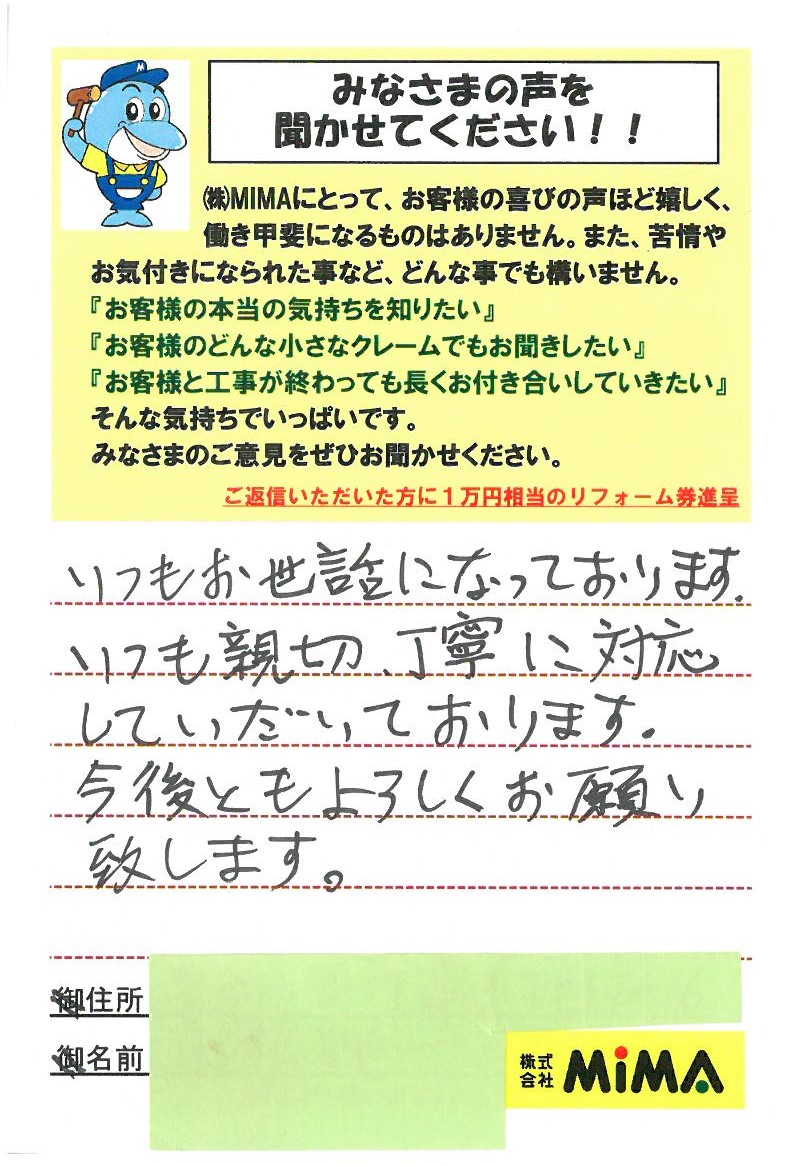 M
みなさまの声を
聞かせてください！！
㈱MIMAにとって、お客様の喜びの声ほど嬉しく、
働き甲斐になるものはありません。また、苦情や
お気付きになられた事など、どんな事でも構いません。
『お客様の本当の気持ちを知りたい』
『お客様のどんな小さなクレームでもお聞きしたい』
『お客様と工事が終わっても長くお付き合いしていきたい』
そんな気持ちでいっぱいです。
みなさまのご意見をぜひお聞かせください。
ご返信いただいた方に１万円相当のリフォーム券進呈
いつもお世話になっております.
いつも親切、丁寧に対応
していだいております.
今後ともよろしくお願い
致します。
御住所
御名前
株式
会社 MiMA